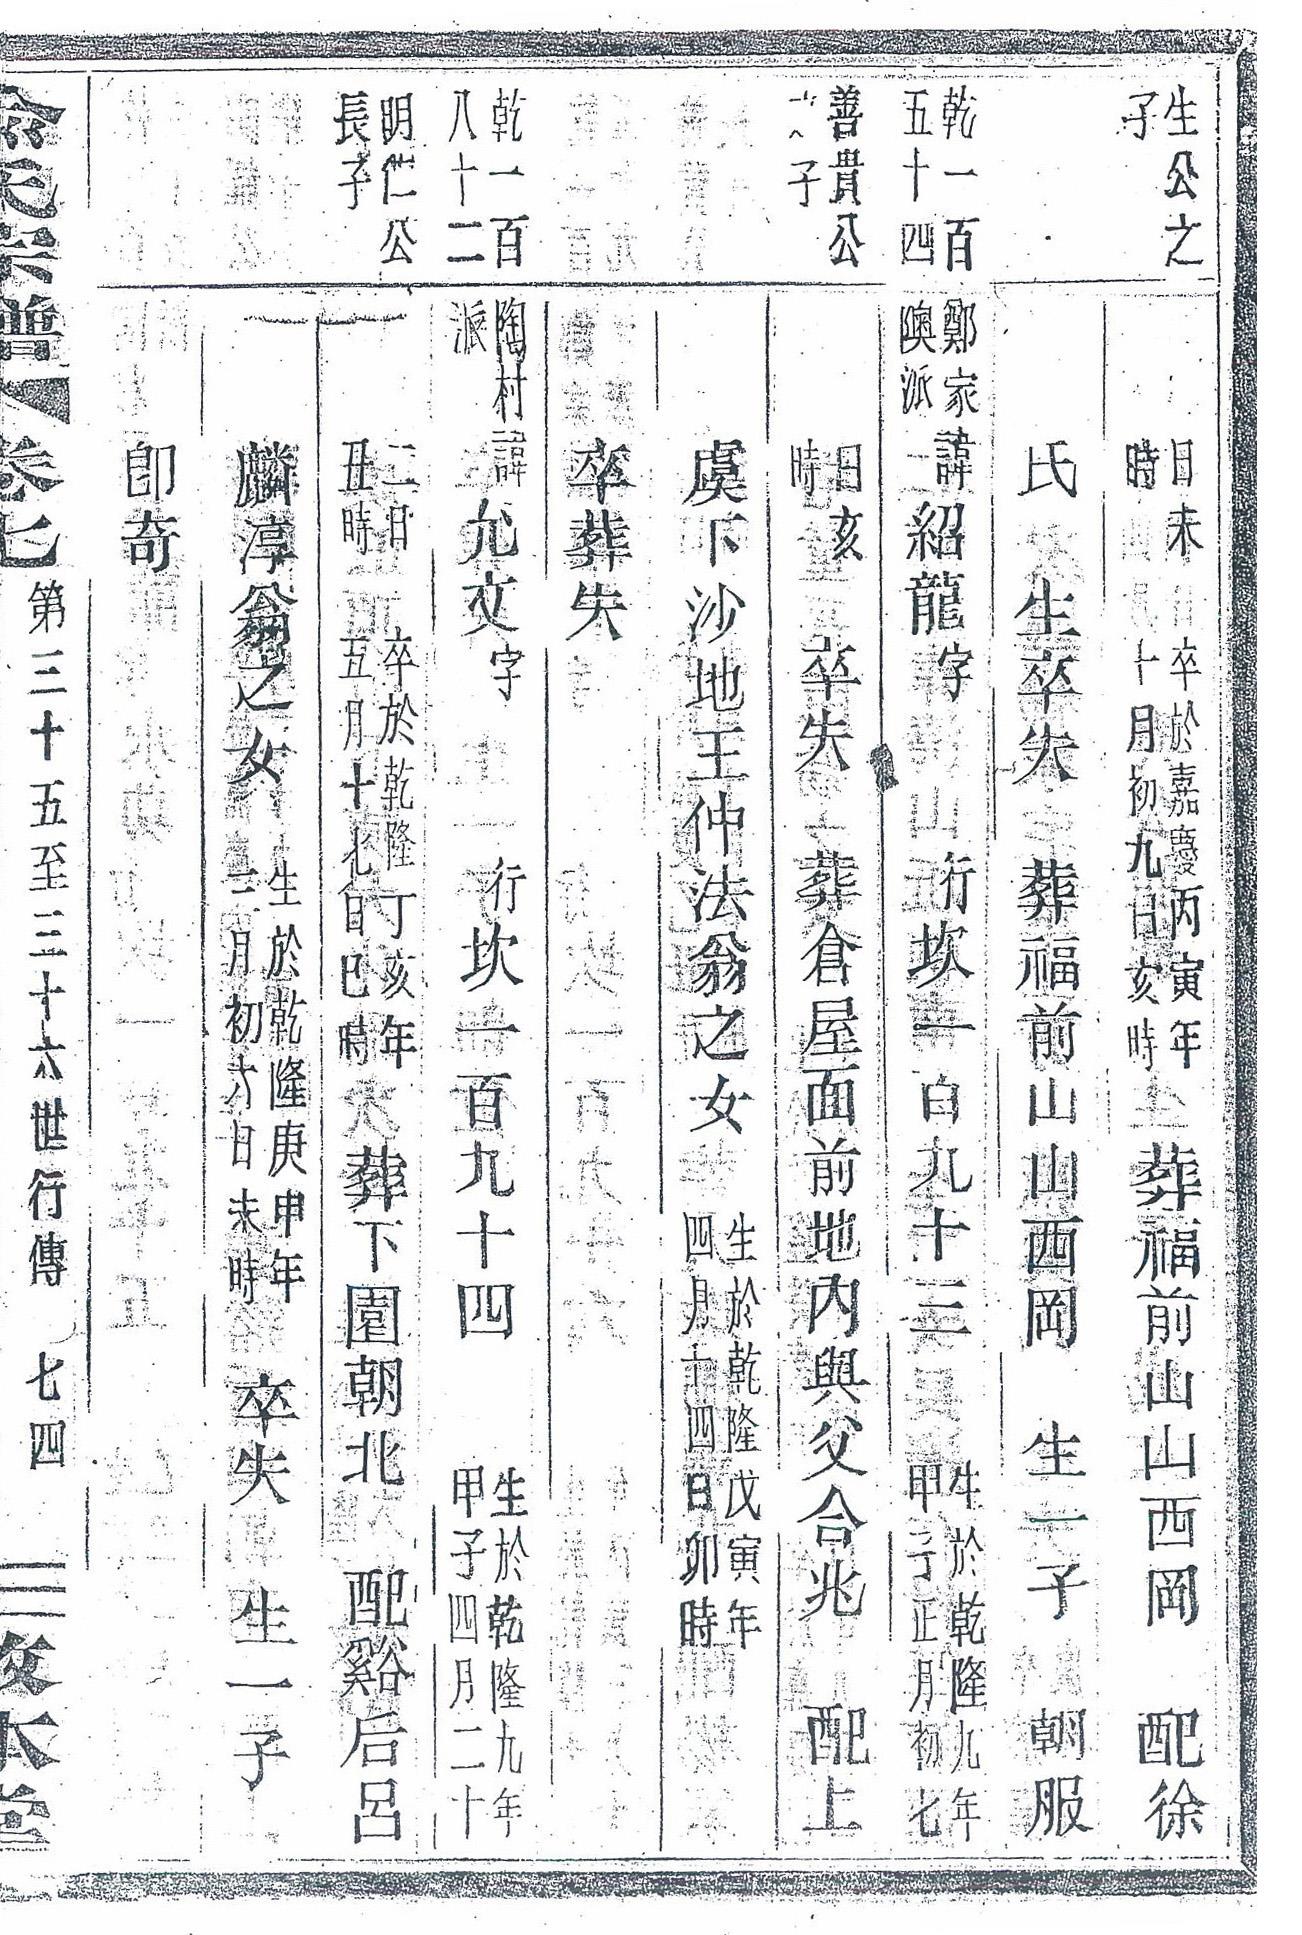 生公之
子
日未 卒於嘉慶丙寅年
時 十月初九日亥時
葬福前山山西岡 配徐
氏 生卒失 葬福前山山西岡 生一子 朝服
乾一百
五十四
鄭家
隩派
諱紹龍字 行坎一百九十三
生於乾隆九年
甲子正月初七
善貴公
子
日亥
時
卒失 葬倉屋面前地內與父合兆 配上
虞下沙地王仲法翁之女
生於乾隆戊寅年
四月十四日卯時
卒葬失
乾一百
八十二
陶村
派
諱允文字 行坎一百九十四
生於乾隆九年
甲子四月二十
明仁公
長子
二日 卒於乾隆丁亥年
丑時 五月十九日巳時
葬下園朝北 配谿后呂
麟淳翁之女
生於乾隆庚申年
二月初六日未時
卒失 生一子
卽奇
俞氏宗譜 卷七 第三十五至三十六世行傳 七四 敦本堂